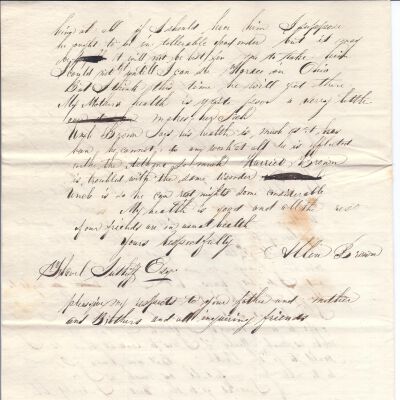 thing at all of I should hear him I suppose
he ought to be in tollerable good order but it may
be it will not be best for you to take him
I could not until I can
But I think this time he will get there
My Mothers health is quite poor a very little
makes her Sick
Unkl Brown Says his health is much as it has
ban, he cannot do any work at all he is afflicted
with the so much Harriet Brown
is troubled with the same
Uncle is so he can rest nights some considerable
My health is good and all the rest
of our friends are in usual health
Yours Respectfully
Allen Brown
Sutliff Esqr
please my respects to your father and mother
and Brothers and all inquiring friends